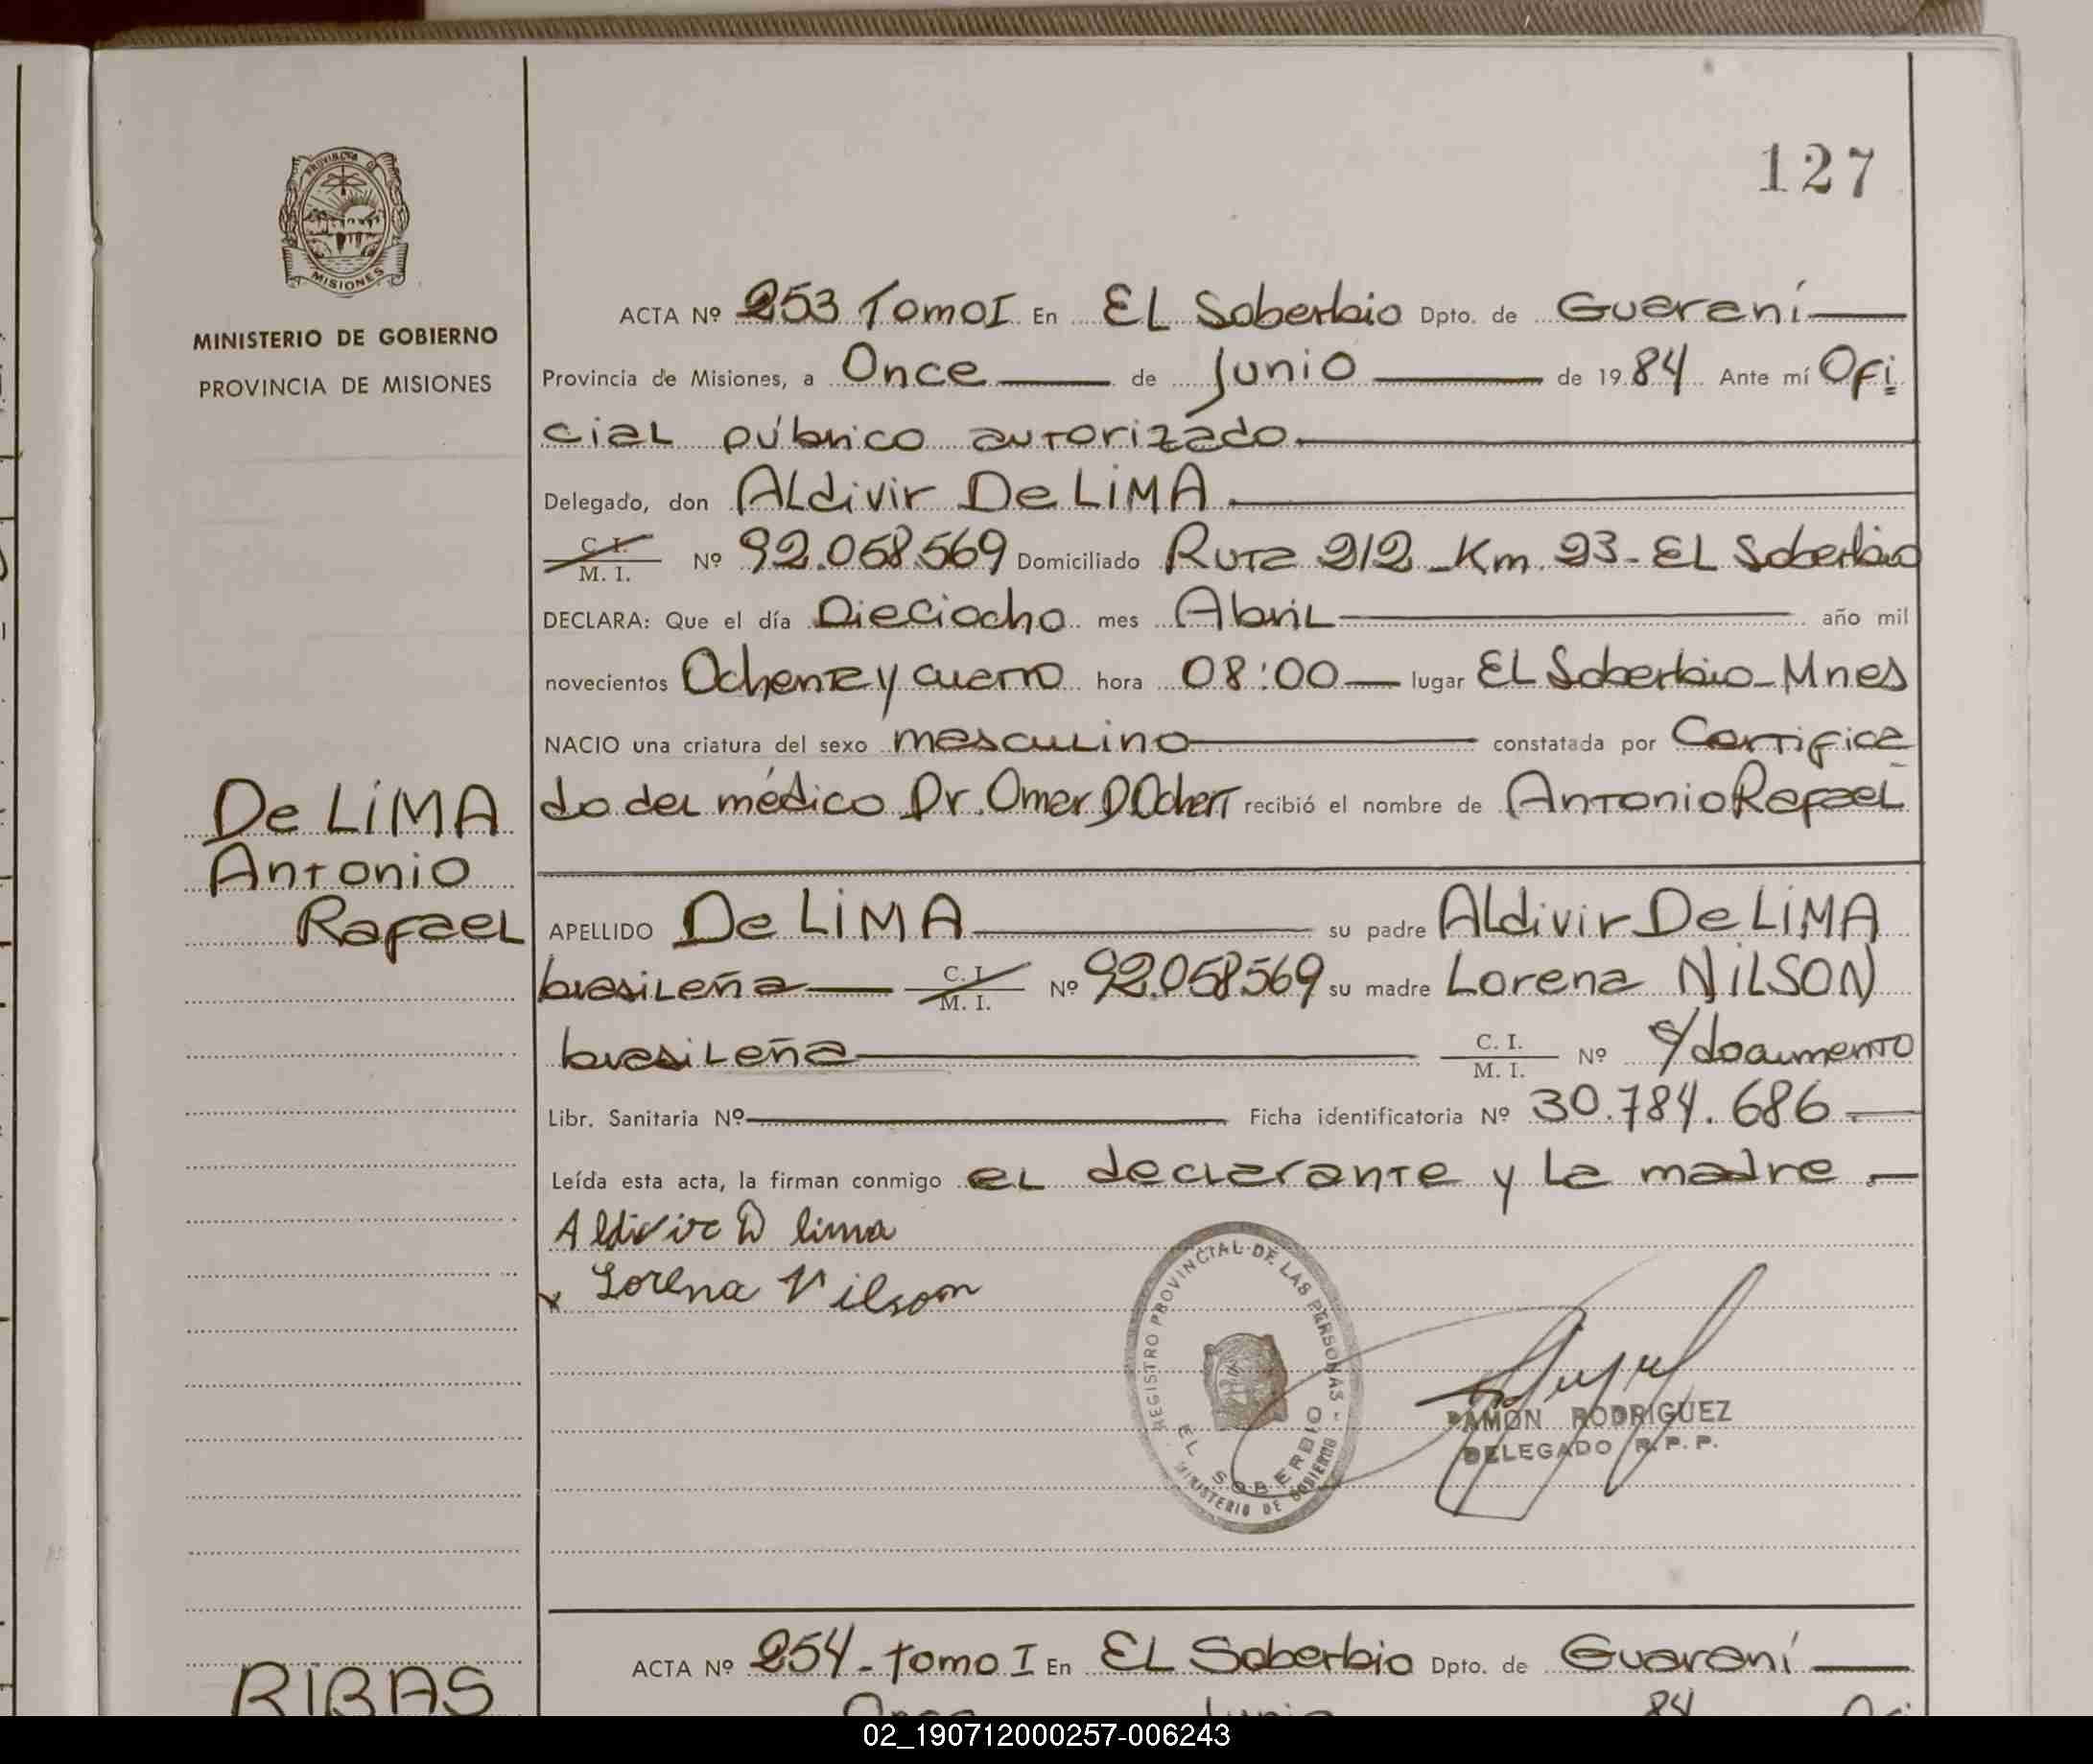 127
PROVINCIA D
MISIONES
MINISTERIO DE GOBIERNO
PROVINCIA DE MISIONES
ACTA Nº 253 Tomo I En EL Soberbio Dpto. de Guaraní
Provincia de Misiones, a Once de Junio de 1984 Ante mí Ofi
cial público autorizado.
Delegado, don ALdivir De LiMA
C. I.
M. I. Nº 92.058.569 Domiciliado Ruta 212 - Km. 23 - EL Soberbio
DECLARA: Que el día Dieciocho mes Abril año mil
novecientos Ochenta y cuatro hora 08:00 lugar EL Soberbio - Mnes
NACIO una criatura del sexo masculino constatada por Certifica
do del médico Dr. Omar D Ochert recibió el nombre de Antonio Rafael
De LiMA
Antonio
Rafael
APELLIDO De LiMA su padre ALdivir De LiMA
brasileña C. I.
M. I. Nº 92.058.569 su madre Lorena NiLSON
brasileña C. I.
M. I. Nº s/documento
Libr. Sanitaria Nº Ficha identificatoria Nº 30.784.686
Leída esta acta, la firman conmigo el declarante y la madre.
Aldivir D lima
x Lorena Nilson
REGISTRO PROVINCIAL DE LAS PERSONAS -
EL SOBERBIO
MINISTERIO DE GOBIERNO
RAMON RODRIGUEZ
DELEGADO R. P. P.
ACTA Nº 254 - tomo I En EL Soberbio Dpto. de Guaraní
RIBAS
Once Junio 84 Ofi
02_190712000257-006243